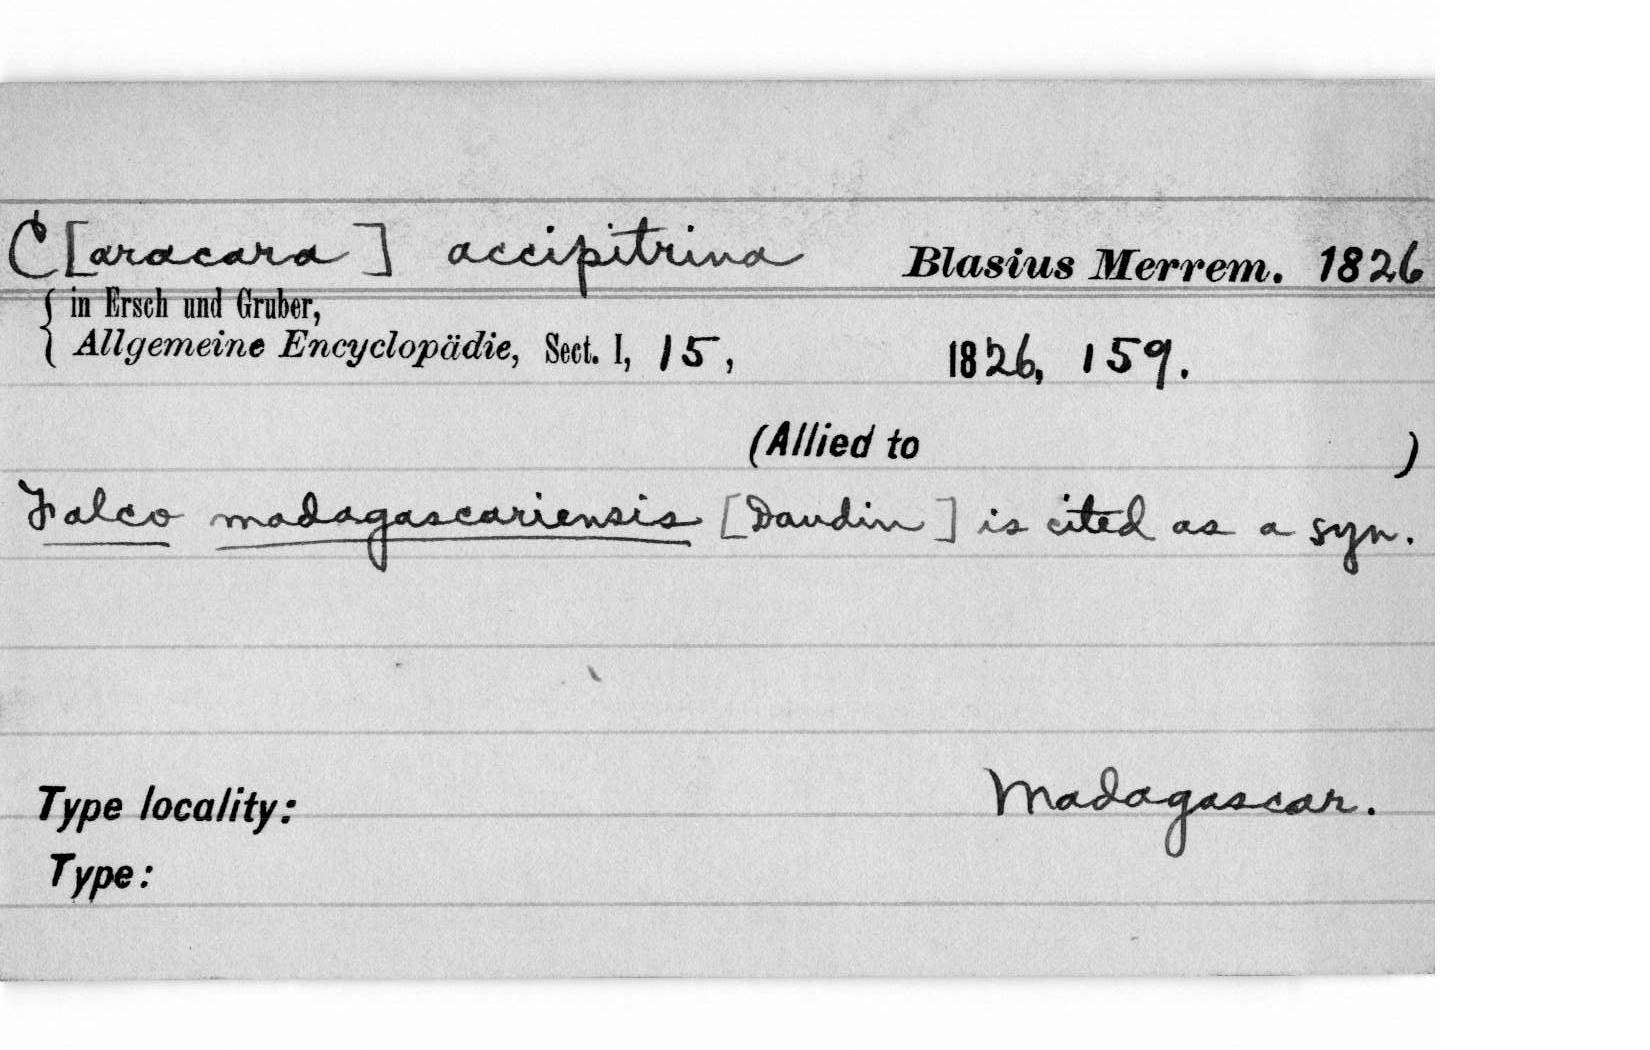 C[aracara] accipitrina Blasius Merrem. 1826
in Ersch und Gruber,
Allgemeine Encyclopädie, Sect. I, 15, 1826, 159.
(Allied to )
Falco madagascariensis [Daudin] is cited as a syn.
Type locality: Madagascar.
Type: